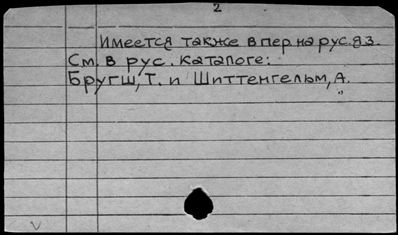 2
Имеется также в пер. на рус. яз.
См. в рус. каталоге:
Бругш, Т. и Шиттенгельм, А.